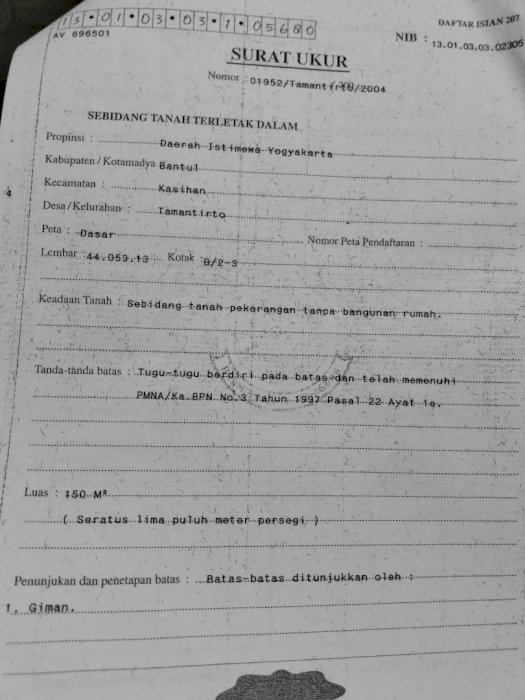 13.01.03.03.1.05680
DAFTAR ISIAN 207
AV 696501
NIB : 13.01.03.03.02305
SURAT UKUR
Nomor : 01952/Tamantirto/2004
SEBIDANG TANAH TERLETAK DALAM
Propinsi : Daerah Istimewa Yogyakarta
Kabupaten / Kotamadya Bantul
Kecamatan : Kasihan
4
Desa / Kelurahan : Tamantirto
Peta : Dasar Nomor Peta Pendaftaran :
Lembar 44.059.13 Kotak B/2-3
Keadaan Tanah : Sebidang tanah pekarangan tanpa bangunan rumah.
Tanda-tanda batas : Tugu-tugu berdiri pada batas dan telah memenuhi
PMNA/Ka.BPN No.3 Tahun 1997 Pasal 22 Ayat 1e.
Luas : 150 M²
( Seratus lima puluh meter persegi )
Penunjukan dan penetapan batas : Batas-batas ditunjukkan oleh :
1. Giman.